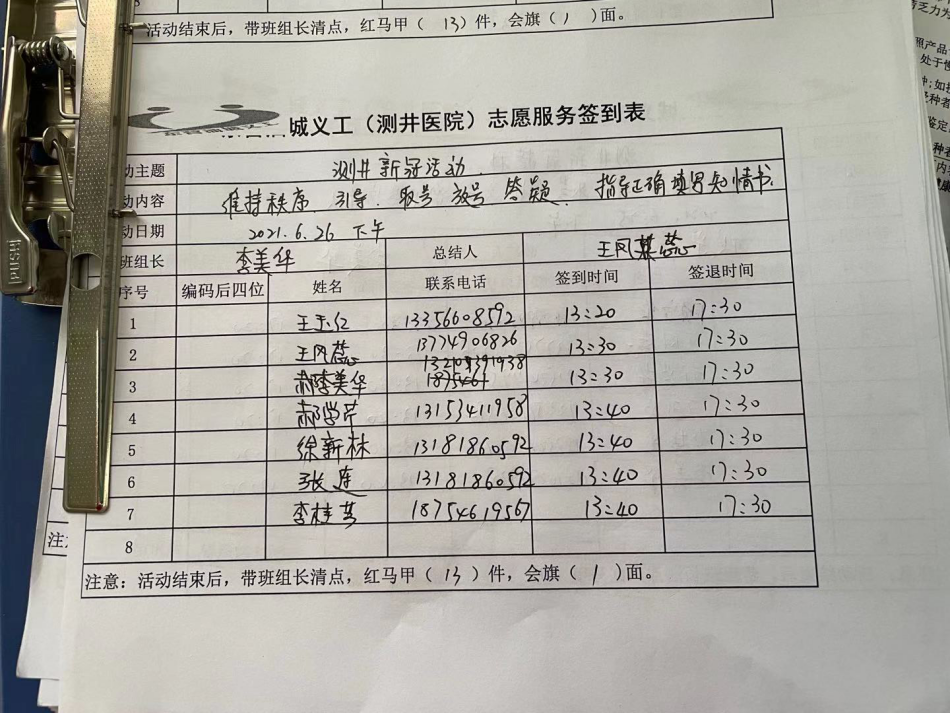 活动结束后，带班组长清点，红马甲（ 13 ）件，会旗（ 1 ）面。
城义工（测井医院）志愿服务签到表
动主题 测井新冠活动
动内容 维持秩序 引导 取号 放号 答疑 指导正确填写知情书
动日期 2021.6.26 下午
班组长 李美华 总结人 王凤蕊
序号 编码后四位 姓名 联系电话 签到时间 签退时间
1 王玉仁 13356608592 13:20 17:30
2 王凤蕊 13774906826 13:30 17:30
3 李美华 13:30 17:30
4 郝学芹 13153411958 13:40 17:30
5 徐新林 13181860592 13:40 17:30
6 张连 13181860592 13:40 17:30
7 李桂芳 18754619567 13:40 17:30
8
注意：活动结束后，带班组长清点，红马甲（ 13 ）件，会旗（ 1 ）面。